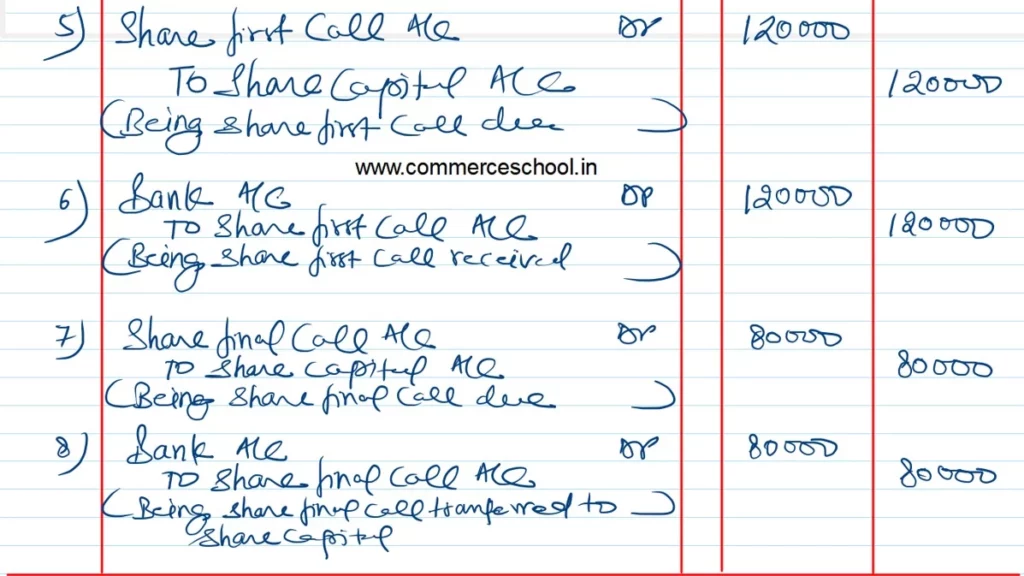 5) Share first Call A/C Dr 120000
To Share Capital A/C 120000
(Being Share first Call due)
www.commerceschool.in
6) Bank A/C Dr 120000
To Share first Call A/C 120000
(Being Share first Call received)
7) Share final Call A/C Dr 80000
To Share Capital A/C 80000
(Being Share final Call due)
8) Bank A/C Dr 80000
To Share final Call A/C 80000
(Being Share final Call tranferred to)
Share Capital